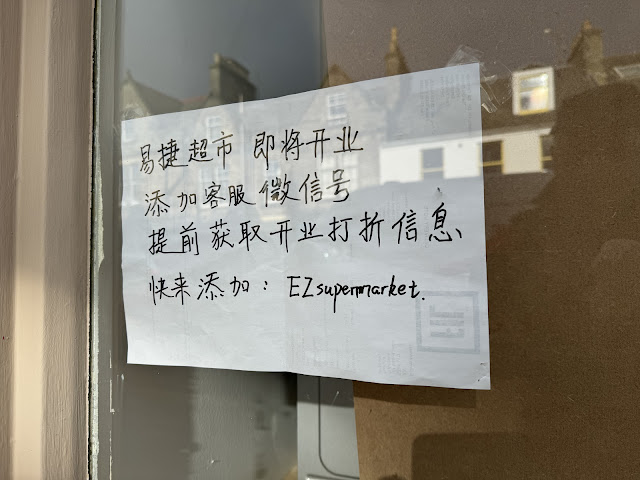 易捷超市 即将开业
添加客服微信号
提前获取开业打折信息
快来添加：EZsupermarket.